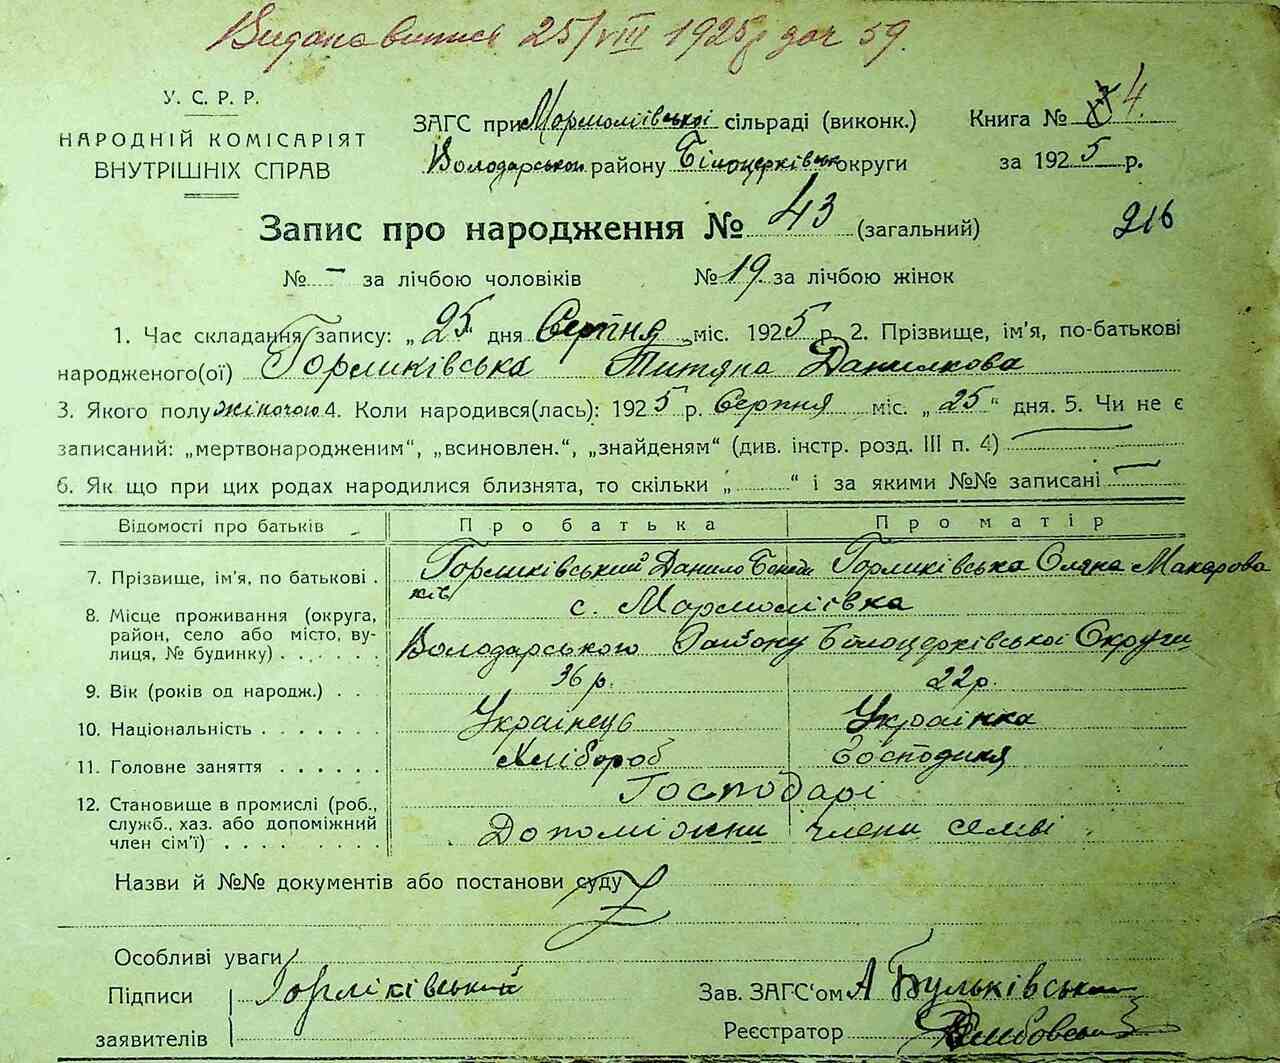 Видана випис 25/VIII 1925 р за № 59.
У. С. Р. Р.
НАРОДНІЙ КОМІСАРІЯТ
ВНУТРІШНІХ СПРАВ
ЗАГС при Мормоліївської сільраді (виконк.)
Володарського району Білоцерківськ округи
Книга № 4.
за 1925 р.
Запис про народження № 43 (загальний)
216
№ – за лічбою чоловіків № 19. за лічбою жінок
1. Час складання запису: „25" дня Серпня міс. 1925 р. 2. Прізвище, ім'я, по-батькові
народженого(ої) Горликівська Титяна Данилкова
3. Якого полу жіночого 4. Коли народився(лась): 1925 р. Серпня міс. „25" дня. 5. Чи не є
записаний: „мертвонародженим", „всиновлен.", „знайденям" (див. інстр. розд. III п. 4)
6. Як що при цих родах народилися близнята, то скільки „ " і за якими №№ записані
Відомості про батьків Про батька Про матір
7. Прізвище, ім'я, по батькові . Горликівський Данило Горликівська Оляна Макарова
8. Місце проживання (округа, район, село або місто, вулиця, № будинку) с. Мармоліївка
Володарського Району Білоцерківської Округи
9. Вік (років од народж.) . . 36 р. 22 р.
10. Національність Українець Українка
11. Головне заняття Хлібороб Господиня
12. Становище в промислі (роб., служб., хаз. або допоміжний член сім'ї) Господарі
Допоміжни члени семві
Назви й №№ документів або постанови суду
Особливі уваги
Підписи заявителів Горліківський
Зав. ЗАГС'ом А Бульківськ
Реєстратор